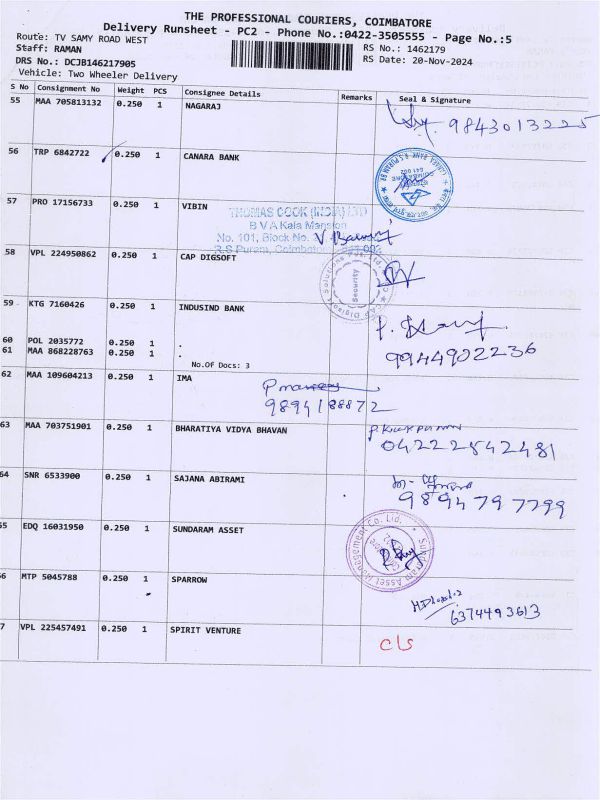 THE PROFESSIONAL COURIERS, COIMBATORE
Delivery Runsheet - PC2 - Phone No.:0422-3505555 - Page No.:5
Route: TV SAMY ROAD WEST
Staff: RAMAN
RS No.: 1462179
DRS No.: DCJB146217905
RS Date: 20-Nov-2024
Vehicle: Two Wheeler Delivery
S No Consignment No Weight PCS Consignee Details Remarks Seal & Signature
55 MAA 705813132 0.250 1 NAGARAJ
9843013225
56 TRP 6842722 0.250 1 CANARA BANK
57 PRO 17156733 0.250 1 VIBIN
THOMAS COOK (INDIA) LTD
B V A Kala Mansion
No. 101, Block No.
R.S Puram, Coimbatore
58 VPL 224950862 0.250 1 CAP DIGSOFT
Security
59 KTG 7160426 0.250 1 INDUSIND BANK
60 POL 2035772 0.250 1 .
61 MAA 868228763 0.250 1 .
9944902236
No.Of Docs: 3
62 MAA 109604213 0.250 1 IMA
9894188872
63 MAA 703751901 0.250 1 BHARATIYA VIDYA BHAVAN
04222542481
64 SNR 6533900 0.250 1 SAJANA ABIRAMI
9894797799
55 EDQ 16031950 0.250 1 SUNDARAM ASSET
Sundaram Asset Management Co. Ltd.
56 MTP 5045788 0.250 1 SPARROW
6374493613
7 VPL 225457491 0.250 1 SPIRIT VENTURE
c/s